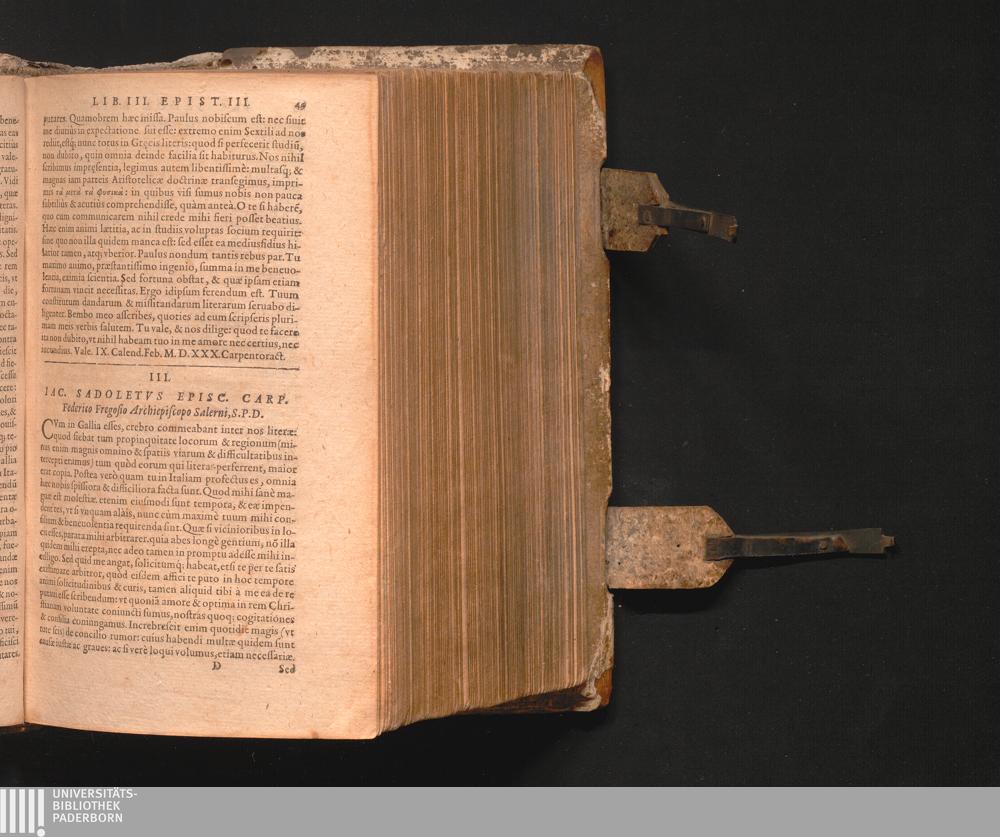 LIB. III. EPIST. III. 49
putares. Quamobrem hæc missa. Paulus nobiscum est: nec sinit
me diutius in expectatione sui esse: extremo enim Sextili ad nos
redijt, estq́; nunc totus in Gręcis literis: quod si perfecerit studiũ,
non dubito, quin omnia deinde facilia sit habiturus. Nos nihil
scribimus impręsentia, legimus autem libentissimè: multasq́; &
magnas iam parteis Aristotelicæ doctrinæ transegimus, impri-
mis τὰ μετὰ τὰ φυσικά: in quibus visi sumus nobis non pauca
subtiliùs & acutiùs comprehendisse, quàm anteà. O te si haberẽ,
quo cum communicarem nihil crede mihi fieri posset beatius.
Hæc enim animi lætitia, ac in studiis voluptas socium requirit:
sine quo non illa quidem manca est: sed esset ea mediusfidius hi-
larior tamen, atq́; vberior. Paulus nondum tantis rebus par. Tu
maximo animo, præstantissimo ingenio, summa in me beneuo-
lentia, eximia scientia. Sed fortuna obstat, & quæ ipsam etiam
fortunam vincit necessitas. Ergo idipsum ferendum est. Tuum
constitutum dandarum & missitandarum literarum seruabo di-
ligenter. Bembo meo asscribes, quoties ad eum scripseris pluri-
mam meis verbis salutem. Tu vale, & nos dilige: quod te facere
ita non dubito, vt nihil habeam tuo in me amore nec certius, nec
iucundius. Vale. IX. Calend. Feb. M. D. XXX. Carpentoract.
III.
IAC. SADOLETVS EPISC. CARP.
Federico Fregosio Archiepiscopo Salerni, S.P.D.
CVm in Gallia esses, crebro commeabant inter nos literæ:
quod fiebat tum propinquitate locorum & regionum (mi-
nus enim magnis omnino & spatiis viarum & difficultatibus in-
tercepti eramus) tum quòd eorum qui literas perferrent, maior
erat copia. Postea verò quam tu in Italiam profectus es, omnia
hæc nobis spissiora & difficiliora facta sunt. Quod mihi sanè ma-
gnæ est molestiæ. etenim eiusmodi sunt tempora, & eæ impen-
dent res, vt si vnquam aliàs, nunc cùm maximè tuum mihi con-
silium & beneuolentia requirenda sint. Quæ si vicinioribus in lo-
cis esses, parata mihi arbitrarer. quia abes longè gentium, nõ illa
quidem mihi erepta, nec adeo tamen in promptu adesse mihi in-
telligo. Sed quid me angat, solicitumq́; habeat, etsi te per te satis
existimare arbitror, quòd eisdem affici te puto in hoc tempore
animi solicitudinibus & curis, tamen aliquid tibi à me ea de re
putaui esse scribendum: vt quoniã amore & optima in rem Chri-
stianam voluntate coniuncti sumus, nostras quoq; cogitationes
& consilia coniungamus. Increbrescit enim quotidie magis (vt
tute scis) de concilio rumor: cuius habendi multæ quidem sunt
causæ iustæ ac graues: ac si verè loqui volumus, etiam necessariæ.
D Sed
UNIVERSITÄTS-
BIBLIOTHEK
PADERBORN